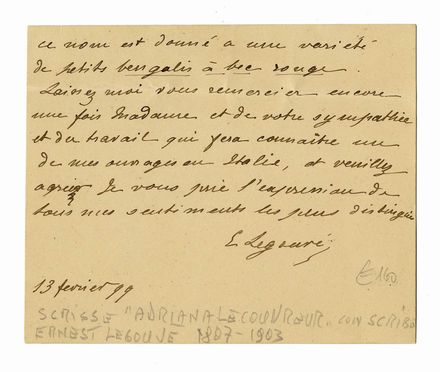 ce nom est donné a une variété
de petits bengalis à bec rouge.
Laissez moi vous remercier encore
une fois Madame et de votre sympathie
et du travail qui fera connaître un
de mes ouvrages en Italie, et veuillez
agréer Je vous prie l'expression de
tous mes sentiments les plus distingués
E Legouvé
13 fevrier 99
€160.
SCRISSE "ADRIANA LECOUVREUR" CON SCRIBE
ERNEST LEGOUVE 1807-1903